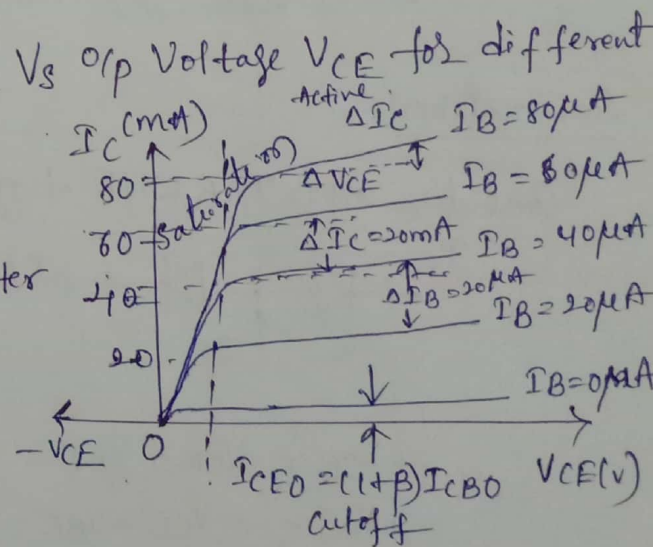 Vs o/p Voltage VCE for different
Active
IC (mA)
ΔIC
IB = 80μA
80
ΔVCE
IB = 60μA
saturation
60
ΔIC = 20mA
IB = 40μA
ter
40
ΔIB = 20μA
IB = 20μA
20
IB = 0μA
-VCE
0
ICEO = (1+β) ICBO
VCE(v)
cutoff